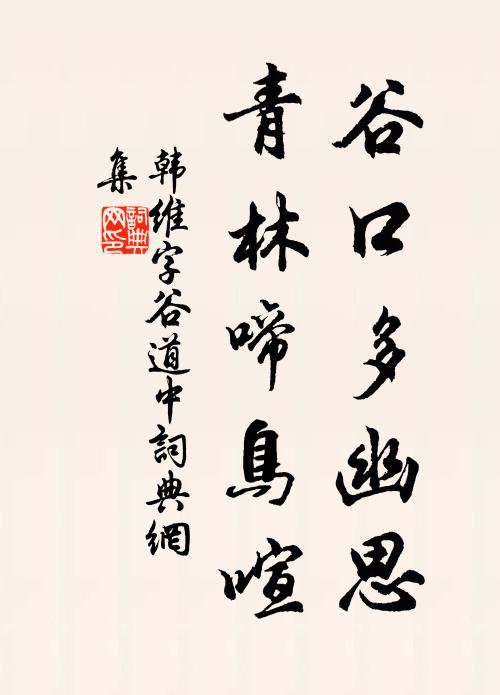 谷口多幽思
青林啼鳥喧
韩維字谷道中詞典網
集
詞典网印